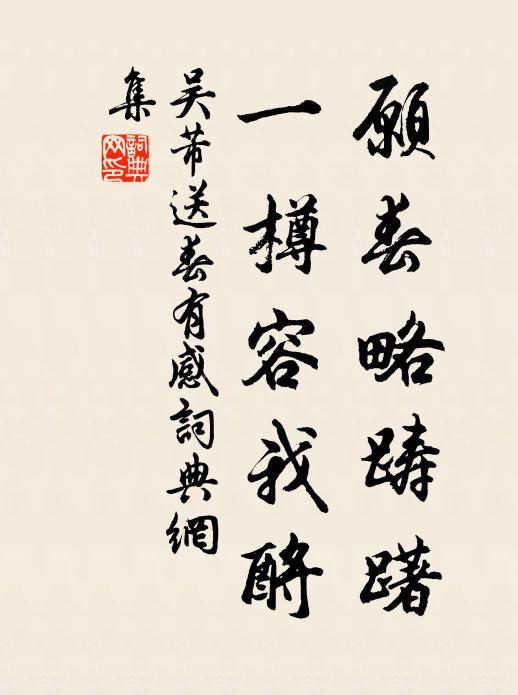 願春略躊躇
一樽容我酹
吴芾送春有感詞典網
集
詞典網印